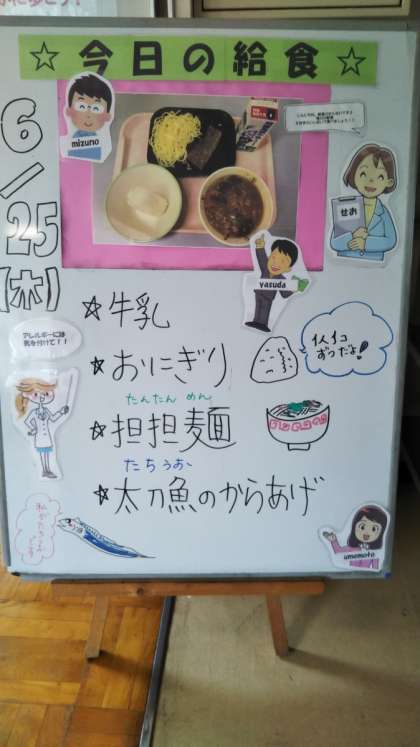 ☆今日の給食☆
6/25
【木】
mizuno
せお
yasuda
☆牛乳
☆おにぎり
1人1コ
ずつだよ!
たんたん めん
☆担担麺
たちうお
☆太刀魚のからあげ
アレルギーには
気を付けて!!
umemoto